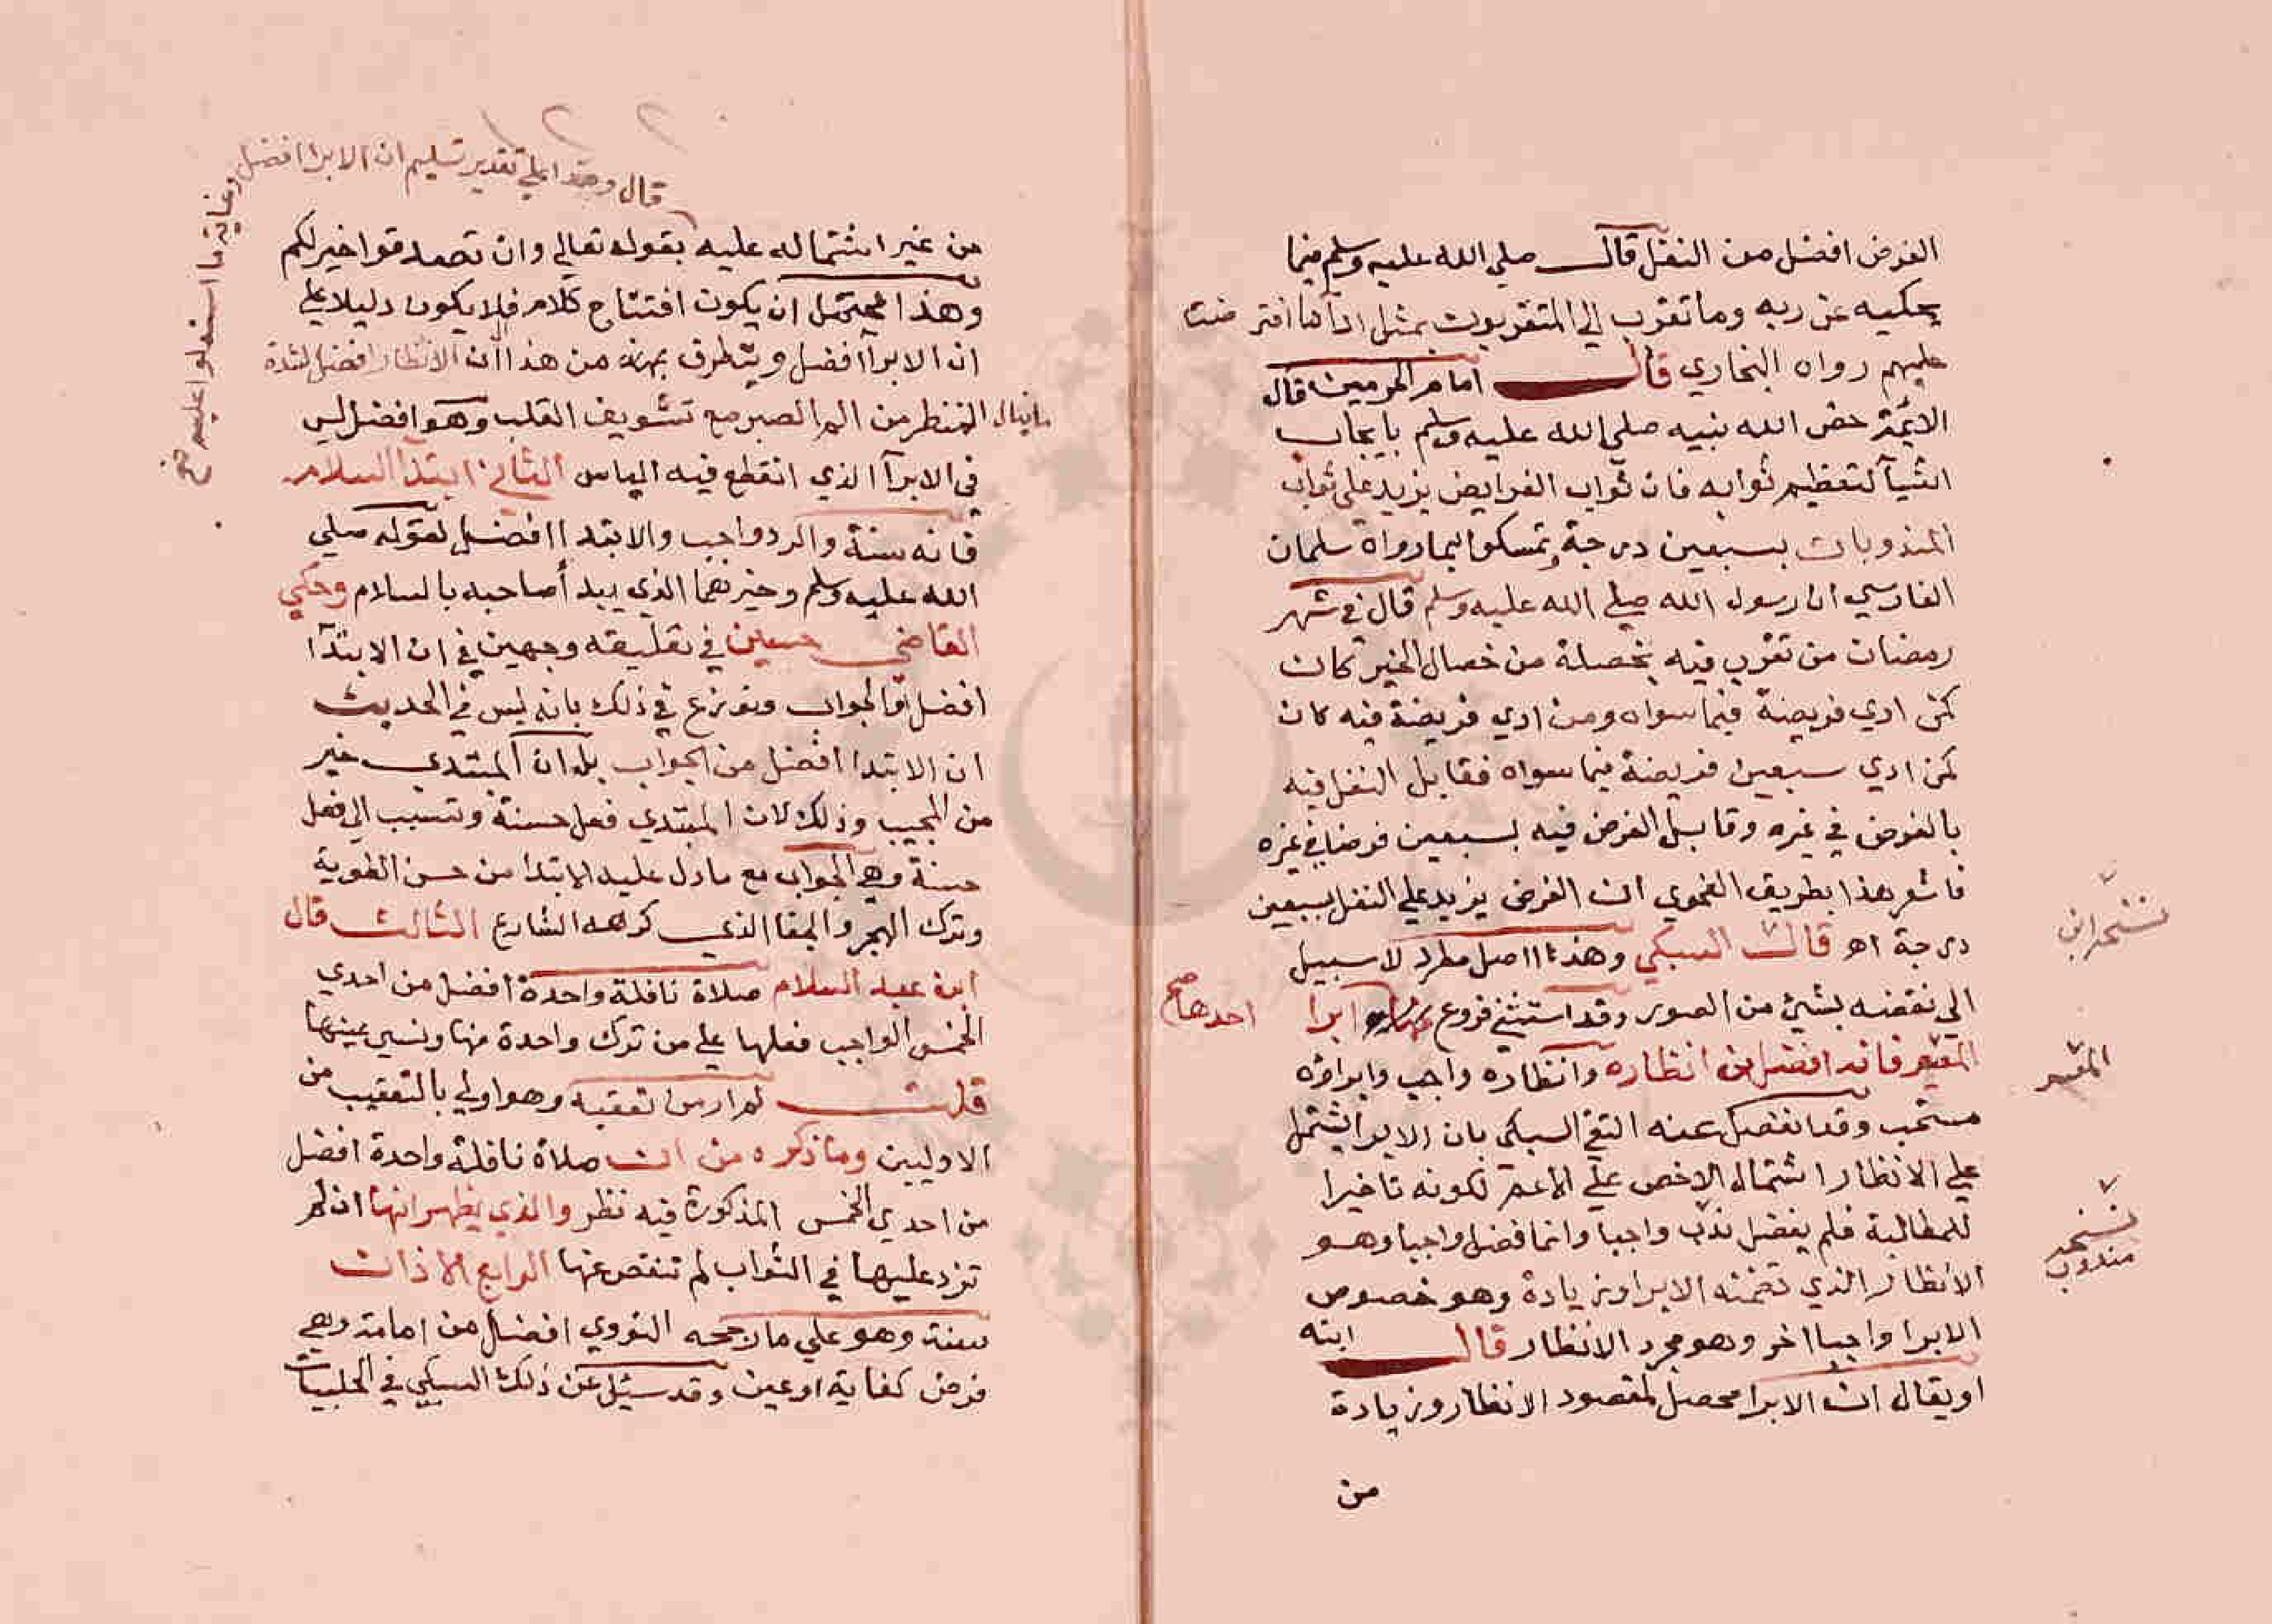 الفرض افضل من النفل قال صلي الله عليه وسلم فيما
يحكيه عن ربه وما تقرب الي المتقربون بمثل ادآ ما افترضت
عليهم رواه البخاري قال امام الحرمين قال
الايمة خص الله نبيه صلي الله عليه وسلم بايجاب
اشيآ لتعظيم ثوابه فان ثواب الفرايض يزيد علي ثواب
المندوبات بسبعين درجة وتمسكوا بما رواه سلمان
الفارسي ان رسول الله صلي الله عليه وسلم قال في شهر
رمضان من تقرب فيه بخصلة من خصال الخير كان
كمن ادي فريضة فيما سواه ومن ادي فريضة فيه كان
كمن ادي سبعين فريضة فيما سواه فقابل النفل فيه
بالفرض في غيره وقابل الفرض فيه بسبعين فرضا في غيره
فاشعر هذا بطريق الفحوي ان الفرض يزيد علي النفل بسبعين
درجة اهـ قال السبكي وهذا اصل مطرد لا سبيل
الي نقضه بشيئ من الصور وقد استثني فروع ابرا
احدها صح
المعسر فانه افضل من انظاره وانظاره واجب وابراؤه
مستحب وقد انفصل عنه التقي السبكي بان الابرا يشتمل
علي الانظار اشتمال الاخص علي الاعم لكونه تاخيرا
للمطالبة فلم يفضل ندب واجبا وانما فضل واجبا وهو
الانظار الذي تضمنه الابرا وزيادة وهو خصوص
الابرا واجبا اخر وهو مجرد الانظار قال ابنه
او يقال ان الابرا محصل لمقصود الانظار وزيادة
من
نسخة ابن
المعسر
نسخه
مندوب
قال وهذا علي تقدير تسليم ان الابرا افضل وغاية ما استدلوا عليه صح
من غير اشتماله عليه بقوله تعالي وان تصدقوا خير لكم
وهذا يحتمل ان يكون افتتاح كلام فلا يكون دليلا علي
ان الابرآ افضل ويتطرق من هذا ان الانظار افضل لشدة
ما ينال المنتظر من الم الصبر مع تشويف القلب وهو افضل ليس
في الابرآ الذي انقطع فيه الياس الثاني ابتدآ السلام
فانه سنة والرد واجب والابتدا افضل لقوله صلي
الله عليه وسلم وخيرهما الذي يبدأ صاحبه بالسلام وحكي
القاضي حسين في تعليقه وجهين في ان الابتدآ
افضل او الجواب ونوزع في ذلك بانه ليس في الحديث
ان الابتدا افضل من الجواب بل ان المبتدي خير
من المجيب وذلك لان المبتدي فعل حسنة وتسبب الي فعل
حسنة وهي الجواب مع ما دل عليه الابتدا من حسن الطوية
وترك الهجر والجفا الذي كرهه الشارع الثالث قال
ابن عبد السلام صلاة نافلة واحدة افضل من احدي
الخمس الواجب فعلها علي من ترك واحدة منها ونسي عينها
قلت لم ار من تعقبه وهو اولي بالتعقيب من
الاوليين وما ذكره من ان صلاة نافلة واحدة افضل
من احدي الخمس المذكورة فيه نظر والذي يظهر انها ان لم
تزد عليها في الثواب لم تنقص عنها الرابع الاذان
سنة وهو علي ما رجحه النووي افضل من امامة وهي
فرض كفاية او عين وقد سئل عن ذلك السبكي في الحلبيات